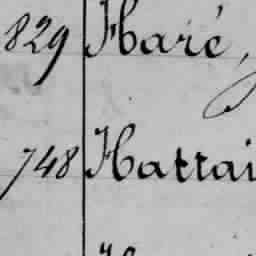 829 Haré,
748 Hattai